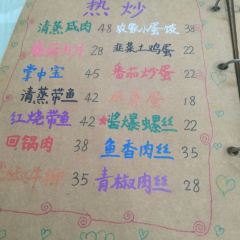 热炒
清蒸咸肉 48 农家小蛋饺 38
28 韭菜土鸡蛋 22
掌中宝 45 番茄炒蛋 22
清蒸带鱼 42 22
红烧带鱼 42 ★酱爆螺丝 22
回锅肉 38 鱼香肉丝 28
35 青椒肉丝 28